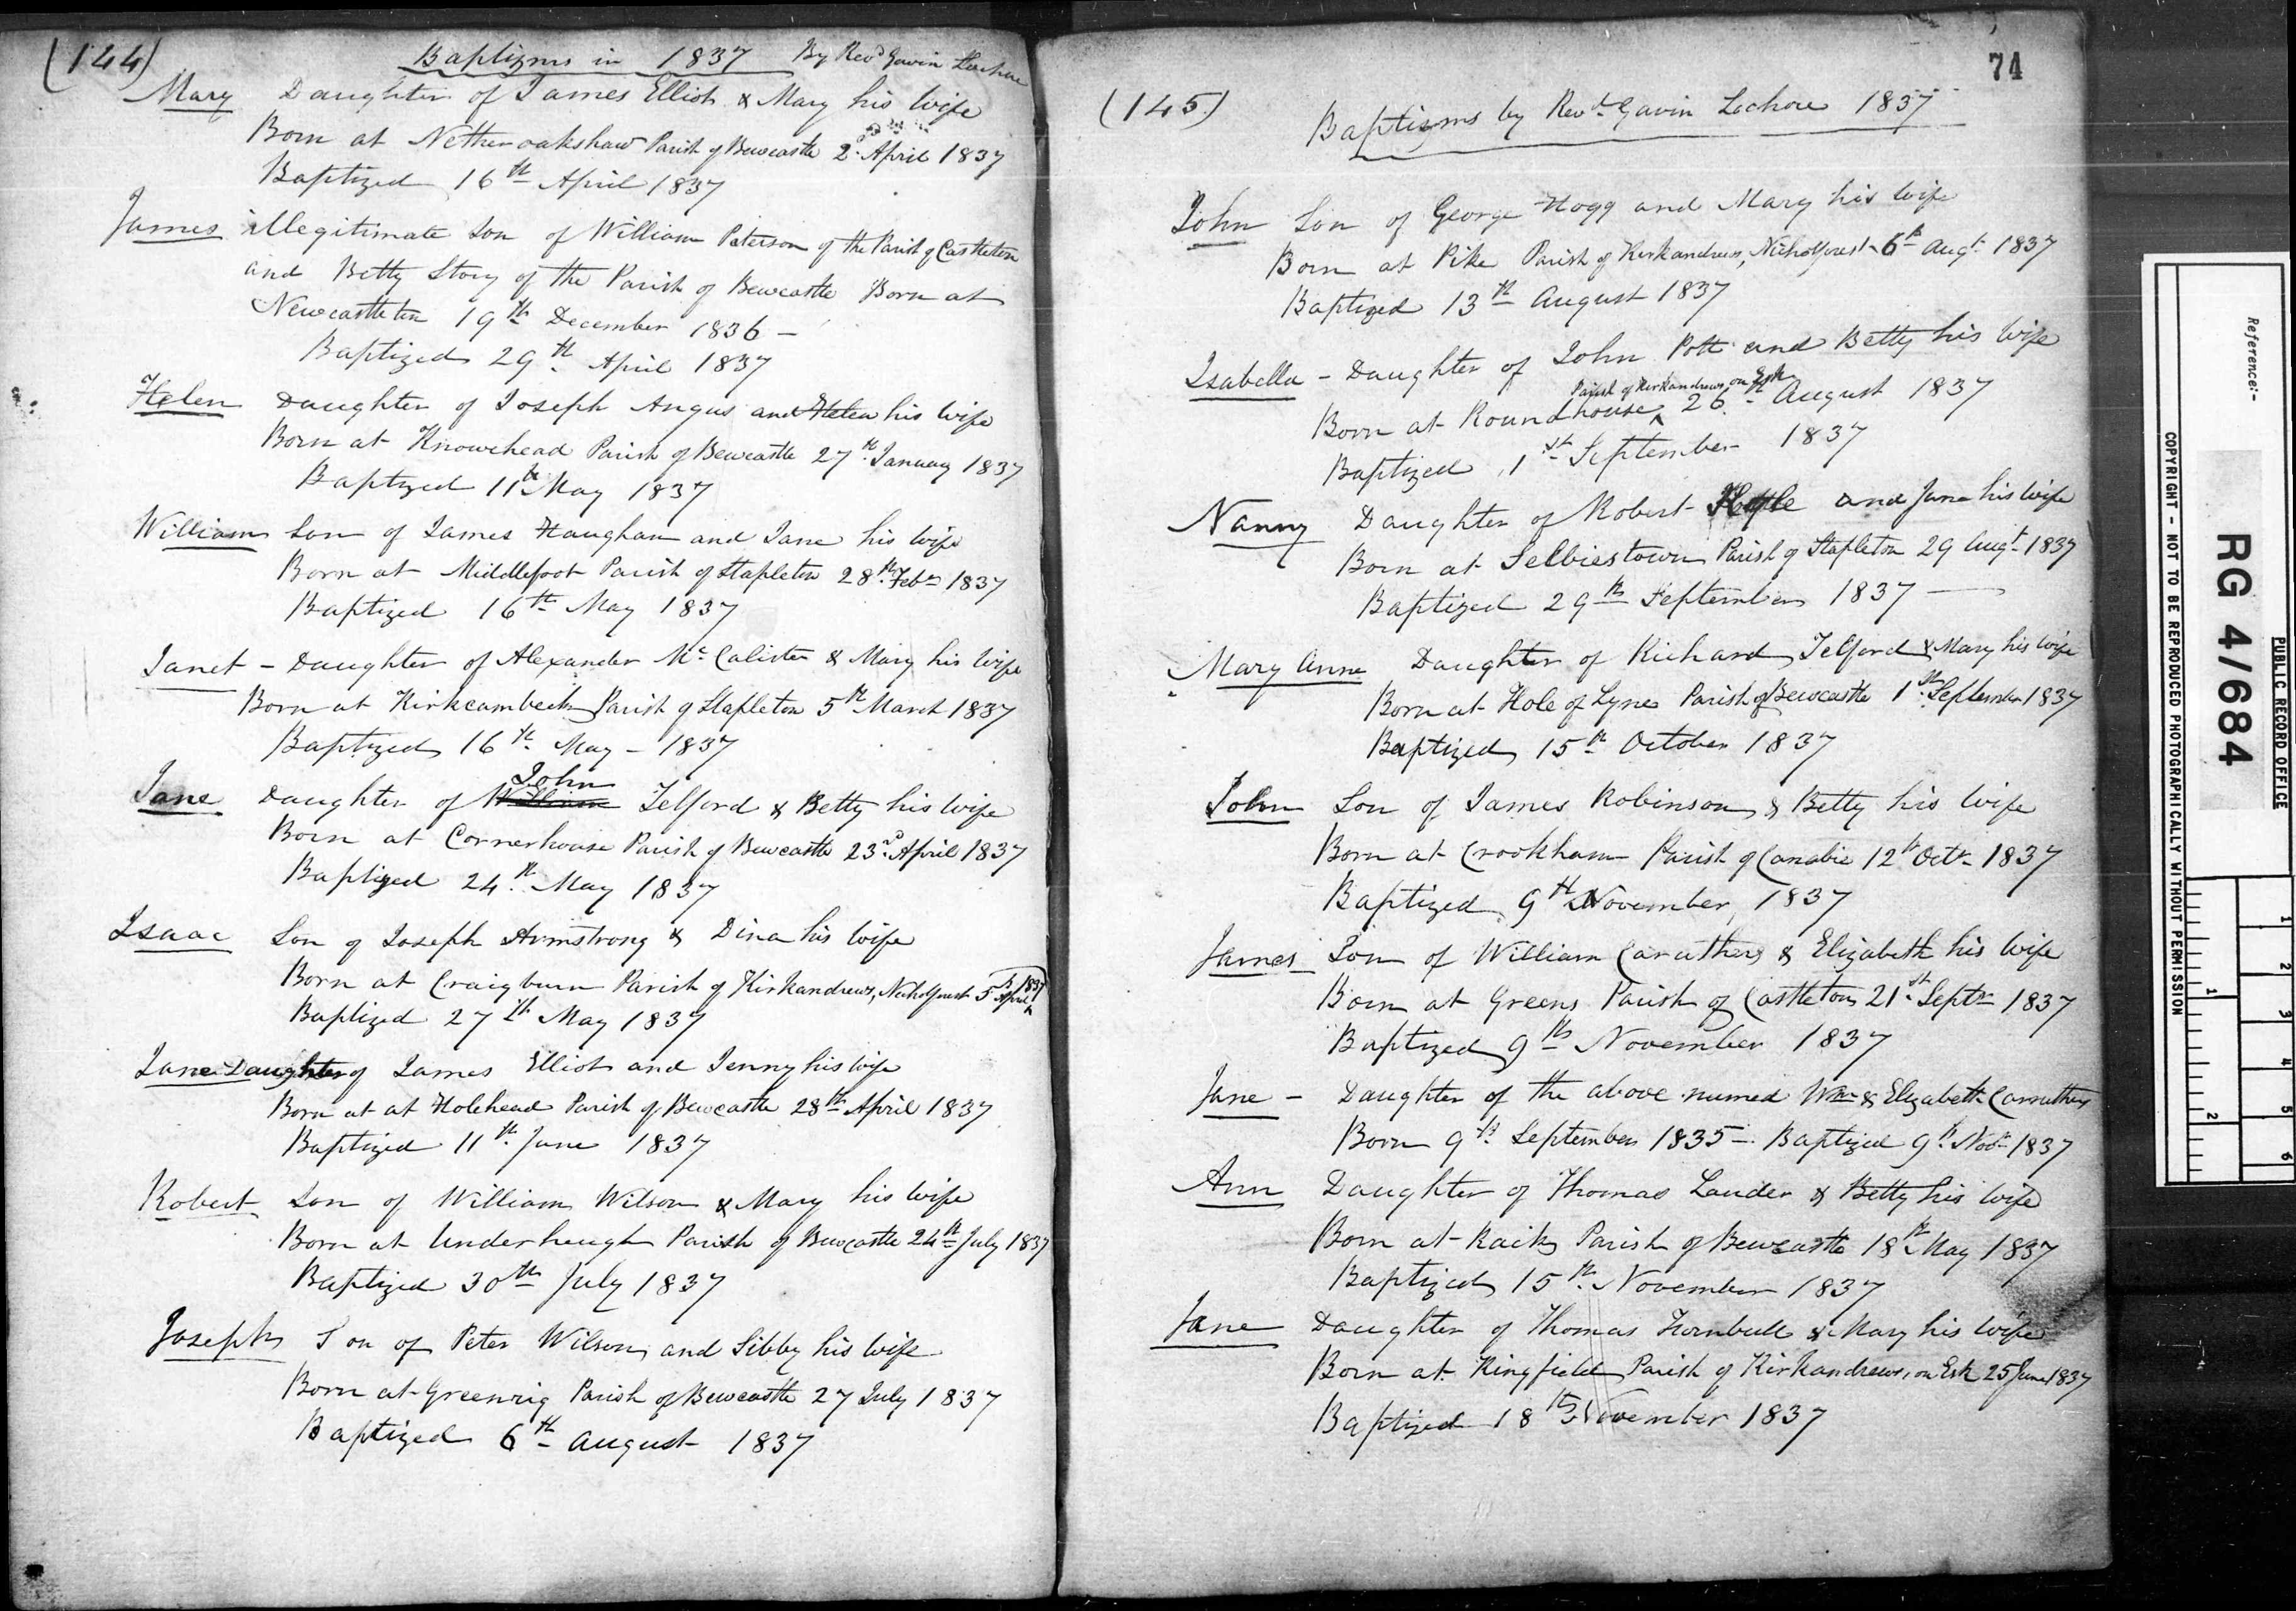 (144) Baptizms in 1837 By Revd Gavin Lochore
Mary Daughter of James Elliot & Mary his wife
Born at Netheroakshaw Parish of Bewcastle 2d April 1837
Baptized 16th April 1837
James illegitimate Son of William Paterson of the Parish of Castleton
and Betty Story of the Parish of Bewcastle Born at
Newcastleton 19th December 1836 –
Baptized 29th April 1837
Helen Daughter of Joseph Angus and Helen his wife
Born at Knowehead Parish of Bewcastle 27th January 1837
Baptized 11th May 1837
William Son of James Haugham and Jane his wife
Born at Middlefoot Parish of Stapleton 28th Febr 1837
Baptized 16th May 1837
Janet – Daughter of Alexander Mc Calister & Mary his wife
Born at Kirkcambeck Parish of Stapleton 5th March 1837
Baptized 16th May – 1837
John
Jane Daughter of William Telford & Betty his wife
Born at Cornerhouse Parish of Bewcastle 23d April 1837
Baptized 24th May 1837
Isaac Son of Joseph Armstrong & Dina his wife
Born at Craigburn Parish of Kirkandrews, Nicholforest 5 April 1837
Baptized 27th May 1837
Jane Daughter of James Elliot and Jenny his wife
Born at at Holehead Parish of Bewcastle 28th April 1837
Baptized 11th June 1837
Robert Son of William Wilson & Mary his wife
Born at Underheugh Parish of Bewcastle 24th July 1837
Baptized 30th July 1837
Joseph Son of Peter Wilson and Sibby his wife
Born at Greenrig Parish of Bewcastle 27 July 1837
Baptized 6th August 1837
74
(145.) Baptizms by Revd Gavin Lochore 1837
John Son of George Hogg and Mary his wife
Born at Pike Parish of Kirkandrews, Nicholforest 6th Augt 1837
Baptized 13th August 1837
Isabella – Daughter of John Pott and Betty his wife
Parish of Kirkandrews on Esk
Born at Roundhouse ^ 26th August 1837
Baptized 1st September 1837
Nanny Daughter of Robert and Jane his wife
Born at Selbiestown Parish of Stapleton 29 Augt 1837
Baptized 29th September 1837 —
Mary Anne Daughter of Richard Telford & Mary his wife
Born at Hole of Lyne Parish of Bewcastle 1st September 1837
Baptized 15th October 1837
John Son of James Robinson & Betty his wife
Born at Crookham Parish of Canabie 12th Octr 1837
Baptized 9th November 1837
James Son of William Caruthers & Elizabeth his wife
Born at Greens Parish of Castleton 21st Septr 1837
Baptized 9th November 1837
Jane – Daughter of the above named Wm & Elizabeth Carruthers
Born 9th September 1835 – Baptized 9th Novr 1837
Ann Daughter of Thomas Lauder & Betty his wife
Born at Raiks Parish of Bewcastle 18th May 1837
Baptized 15th November 1837
Jane Daughter of Thomas Turnbull & Mary his wife
Born at Kingfield Parish of Kirkandrews, on Esk 25 June 1837
Baptized 18th November 1837
PUBLIC RECORD OFFICE
Reference:-
RG 4/684
COPYRIGHT - NOT TO BE REPRODUCED PHOTOGRAPHICALLY WITHOUT PERMISSION
1 2 3 4 5 6
1 2